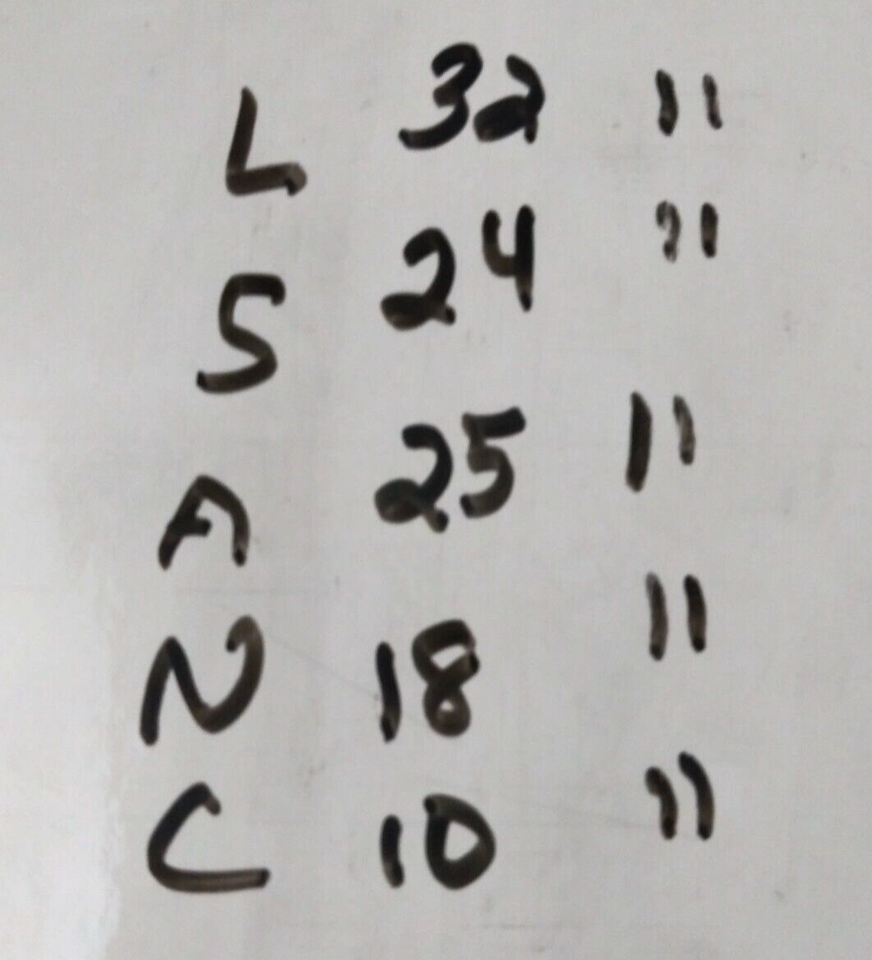 L 32 "
S 24 "
A 25 "
N 18 "
C 10 "